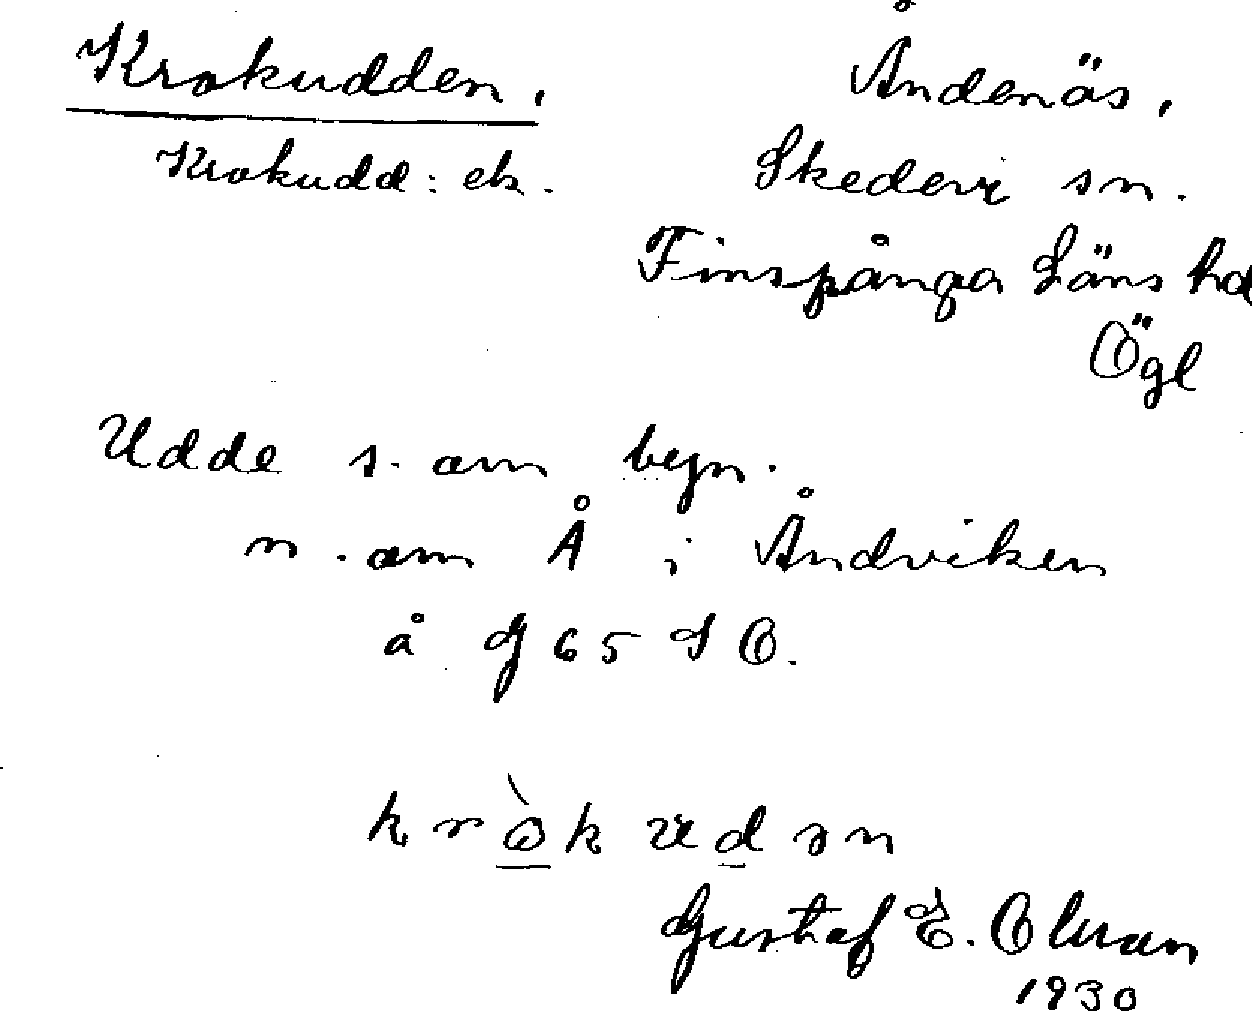 Krokudden,
Åndenäs,
Krokudd: ek.
Skedevi sn.
Finspånga Läns hd
Ögl
Udde s. om beyn.
n. om Å i Åndviken
å G 65 S O.
k r ò k u d ə n
Gustaf E. Olman
1930